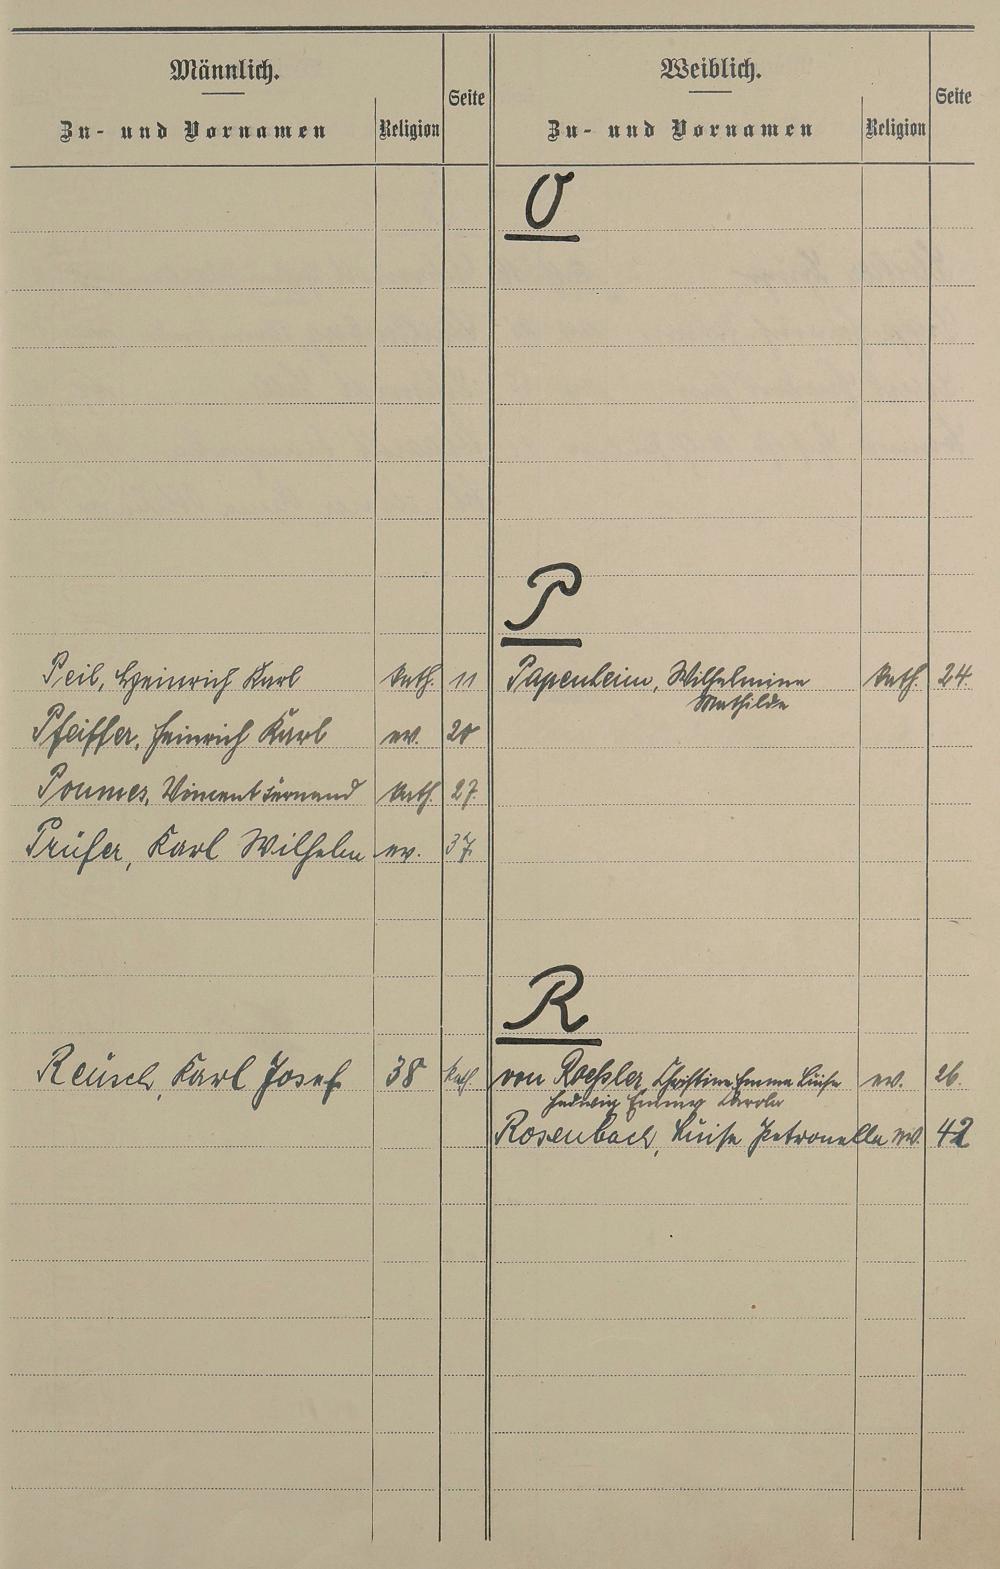 Männlich. Weiblich.
Zu- und Vornamen Religion Seite Zu- und Vornamen Religion Seite
O
P
Peil, Heinrich Karl kath. 11 Papenheim, Wilhelmine kath. 24.
Mathilde
Pfeiffer, Heinrich Karl ev. 20
Poumes, Vincent Fernand kath. 27.
Prüfer, Karl Wilhelm ev. 37.
R
Reusch, Karl Josef 38 kath. von Roeßler, Christine Emma Luise ev. 26.
Hedwig Emmy Carola
Rosenbach, Luise Petronella ev. 42